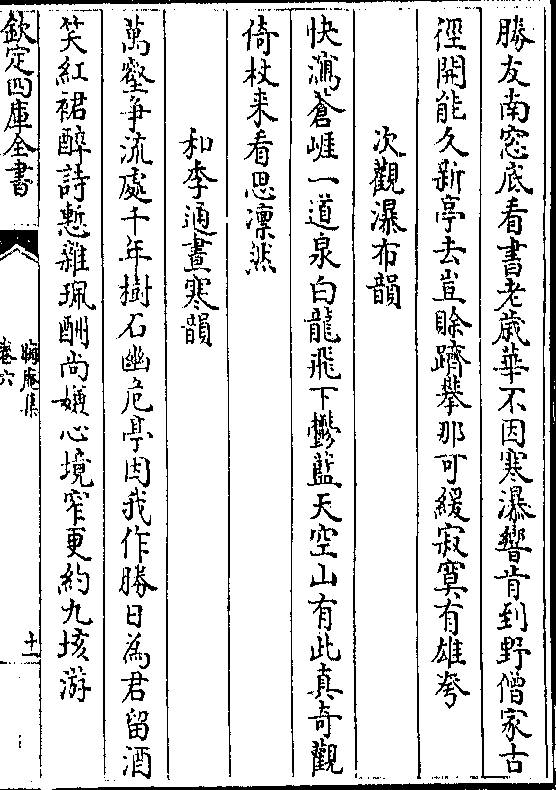 勝友南窓底看書老歲華不因寒瀑響肯到野僧家古
徑開能久新亭去豈賖躋攀那可緩寂寞有雄夸
次觀瀑布韻
快瀉蒼崖一道泉白龍飛下鬱藍天空山有此真奇觀
倚杖来看思凛然
和李通晝寒韻
萬壑爭流處千年樹石幽危亭因我作勝日為君留酒
笑紅裙醉詩慙雜珮酬尚嫌心境窄更約九垓游
欽定四庫全書
晦庵集
卷六
十一